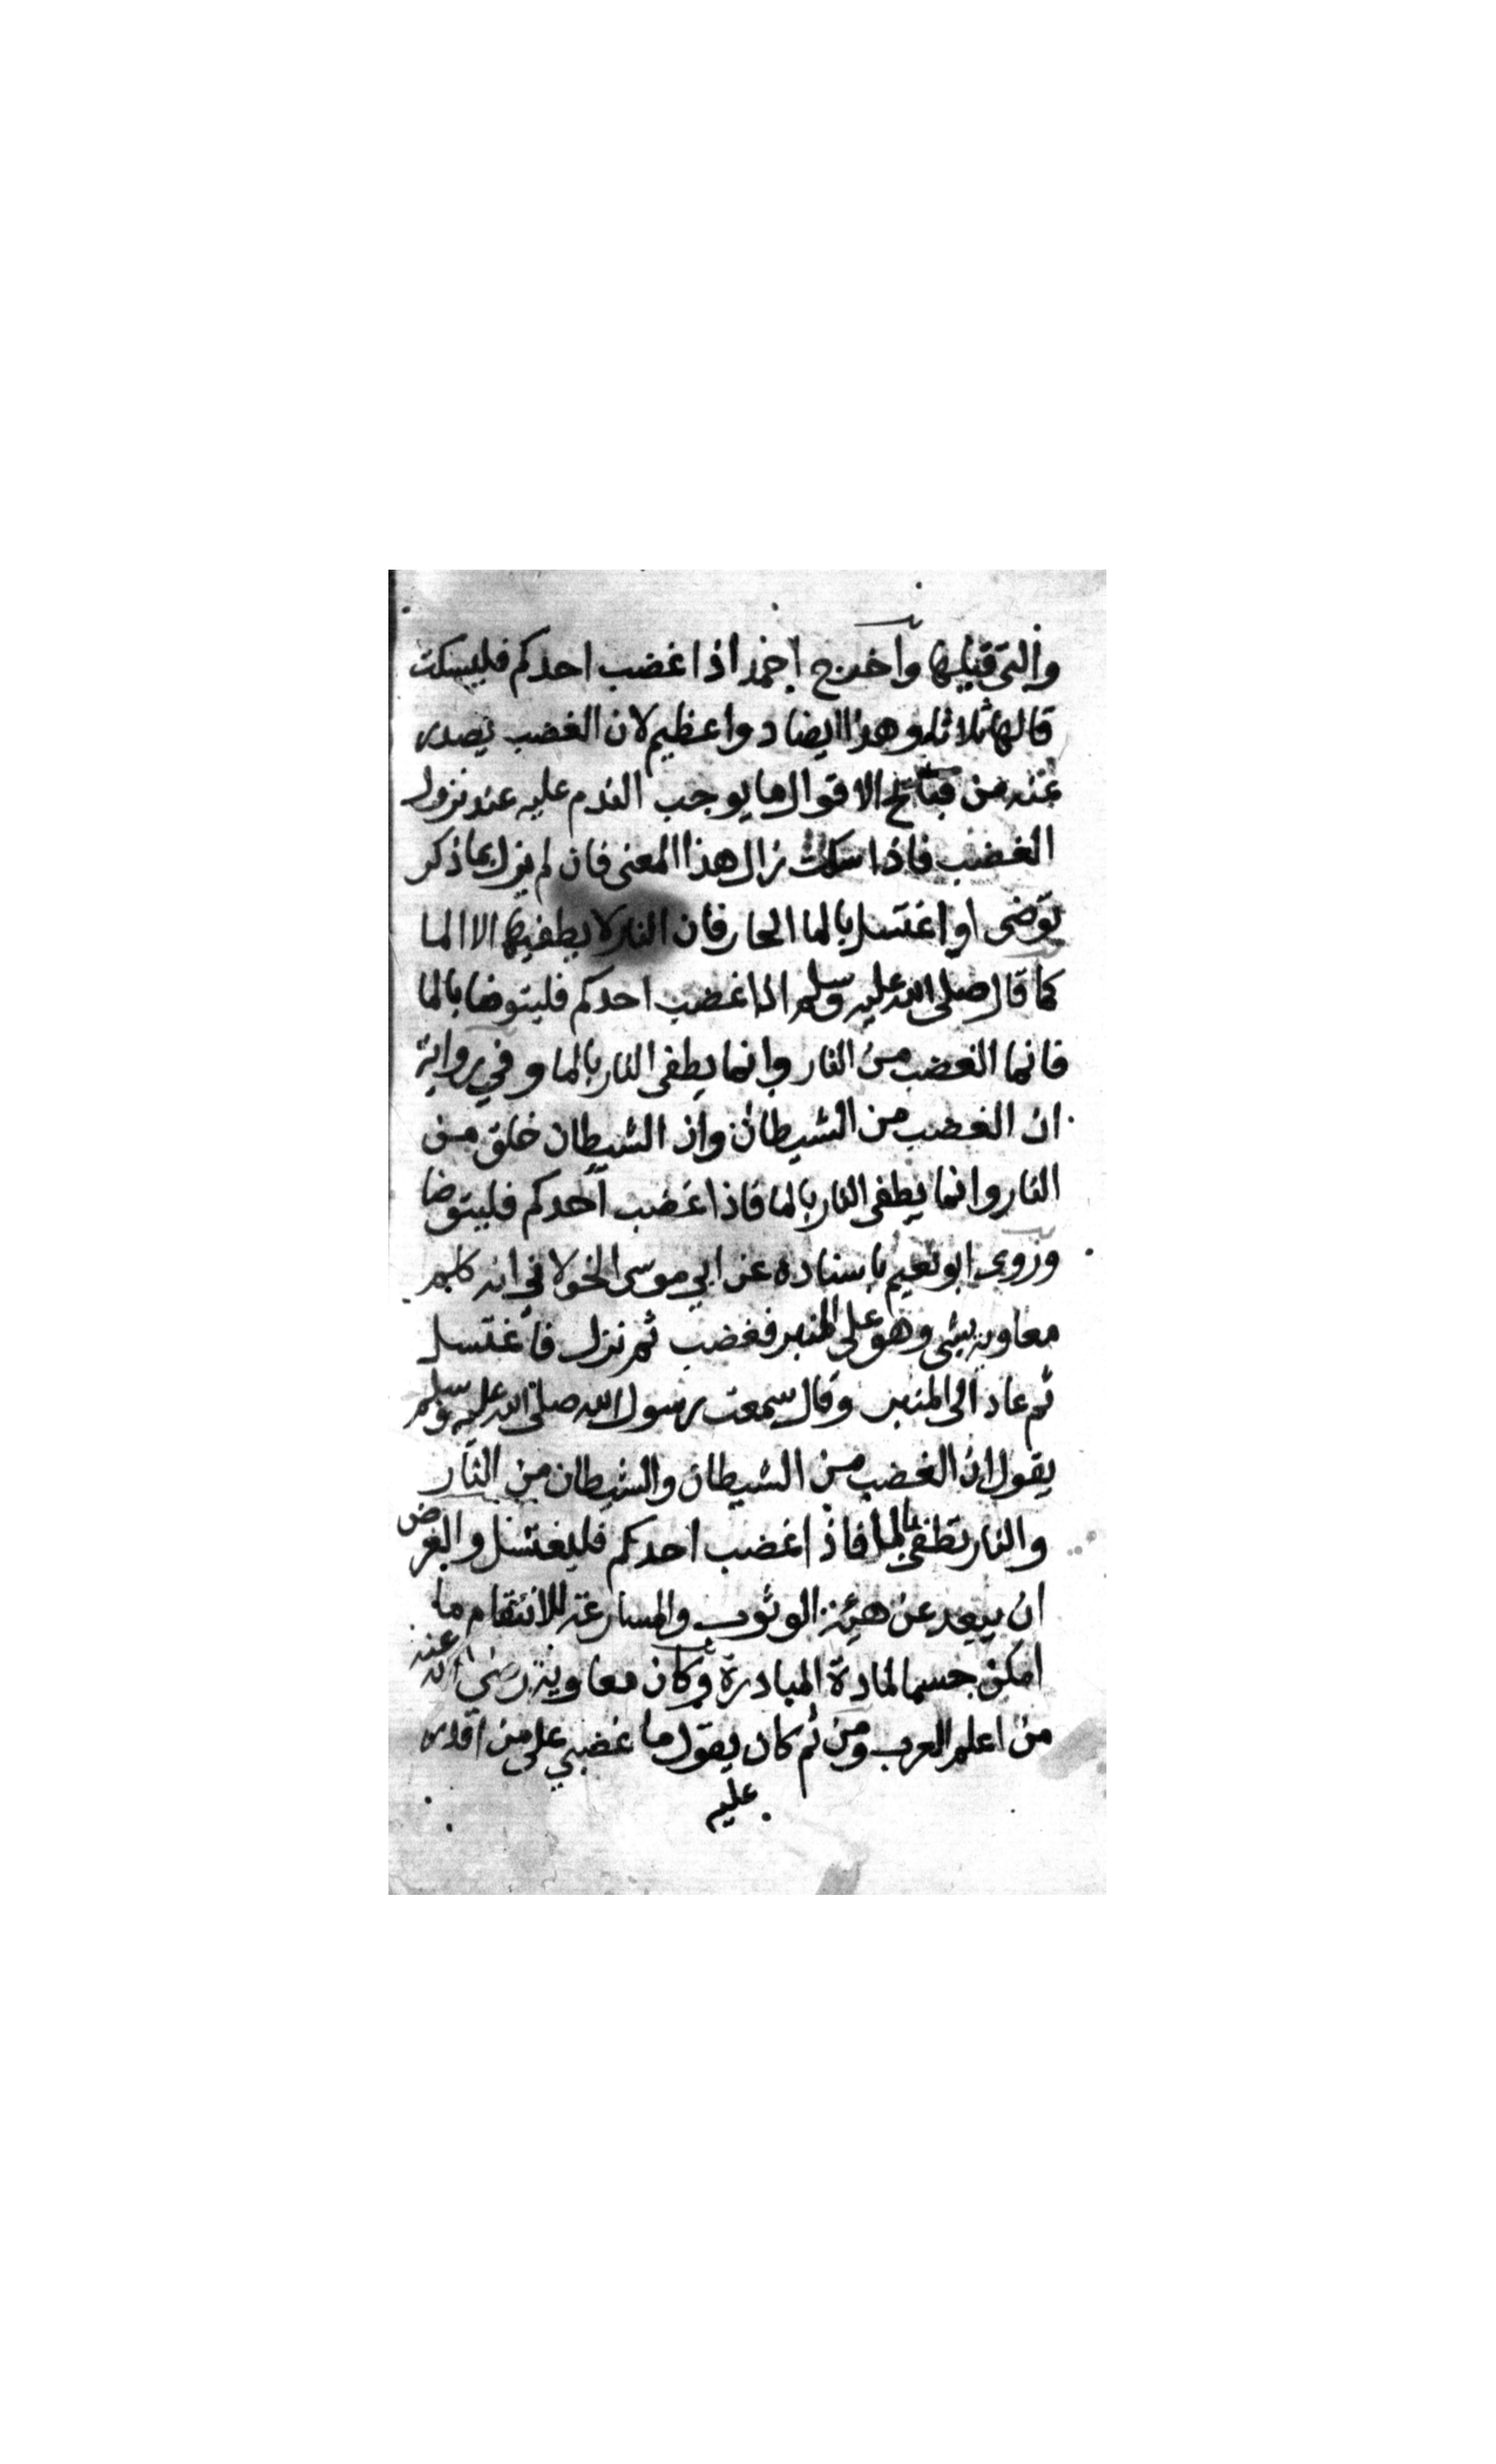 والتي قبلها واخرج احمد اذا غضب احدكم فليسكت
قالها ثلاثا وهذا ايضا دواعظيم لان الغضب يصدر
عنه من قبائح الاقوال ما يوجب الندم عليه عند نزول
الغضب فاذا سكت زال هذا المعنى فان لم يزل بما ذكر
توضى او اغتسل بالما الحار فان النار لا يطفيها الا الما
كما قال صلى الله عليه وسلم اذا غضب احدكم فليتوضا بالما
فانما الغضب من النار وانما يطفى النار بالما وفي رواية
ان الغضب من الشيطان وان الشيطان خلق من
النار وانما يطفى النار بالما فاذا غضب احدكم فليتوضا
وروى ابو نعيم باسناده عن ابي موسى الخولاني انه كلم
معاوية بشي وهو على المنبر فغضب ثم نزل فاغتسل
ثم عاد الى المنبر وقال سمعت رسول الله صلى الله عليه وسلم
يقول ان الغضب من الشيطان والشيطان من النار
والنار تطفى بالما فاذا غضب احدكم فليغتسل والغرض
ان يبعد عن هيئة الوثوب والمسارعة للانتقام ما
امكن حسما لمادة المبادرة وكان معاوية رضي الله عنه
من اعلم العرب ومن ثم كان يقول ما غضبي على من اقدر
عليه